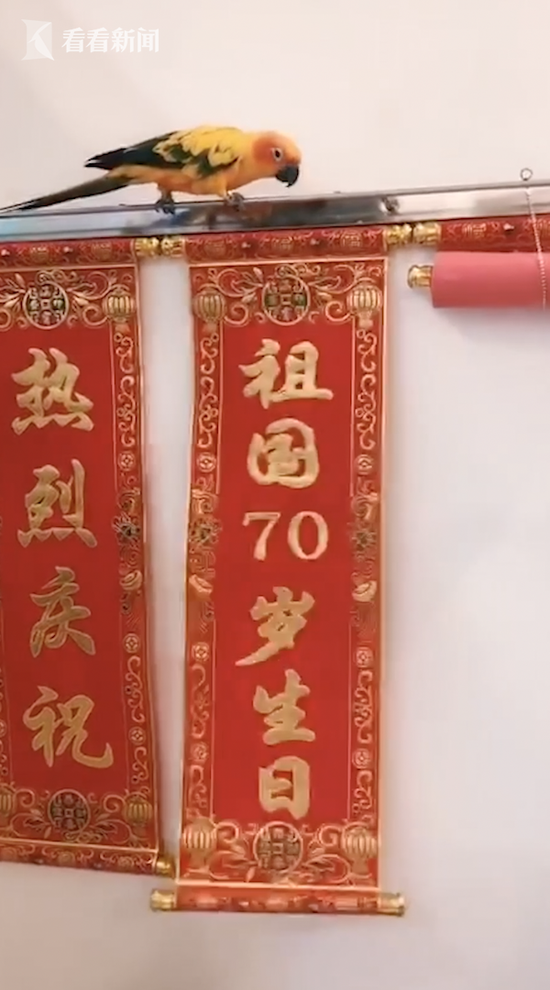 看看新闻
热烈庆祝
祖国70岁生日